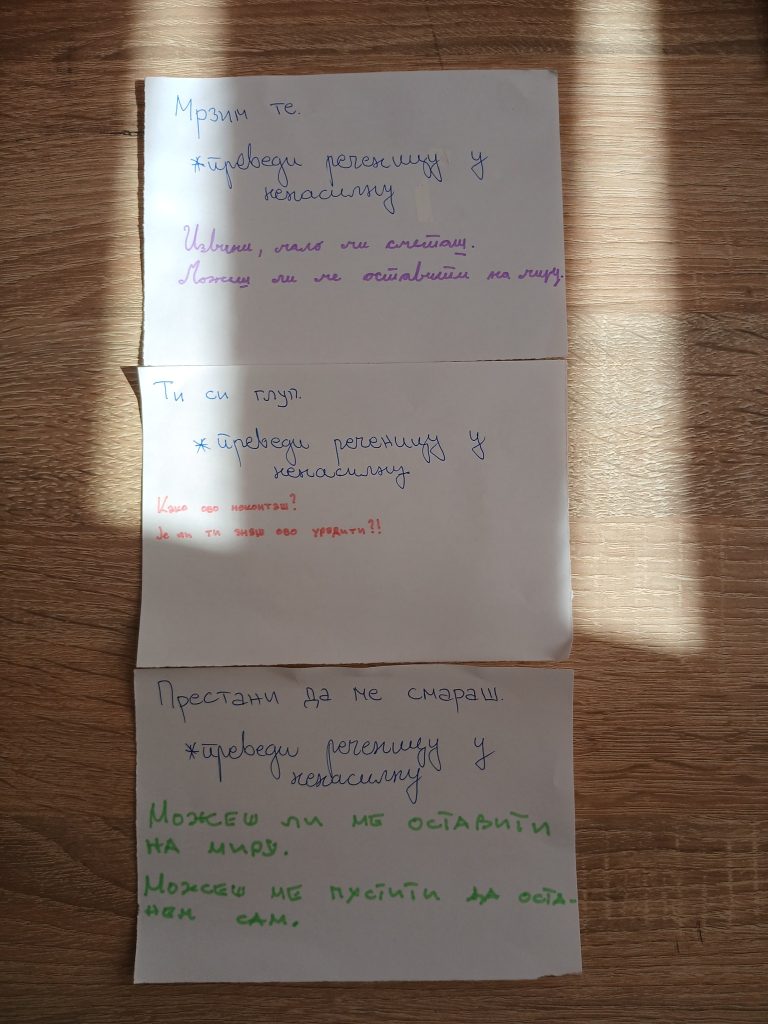 Мрзим те.
*преведи реченицу у
ненасилну
Извини, мало ми сметаш.
Можеш ли ме оставити на миру.
Ти си глуп.
*преведи реченицу у
ненасилну
Како ово неконташ?
Је ли ти знаш ово урадити?!
Престани да ме смараш.
*преведи реченицу у
ненасилну
МОЖЕШ ЛИ МЕ ОСТАВИТИ
НА МИРУ.
МОЖЕШ МЕ ПУСТИТИ ДА ОСТА-
НЕМ САМ.